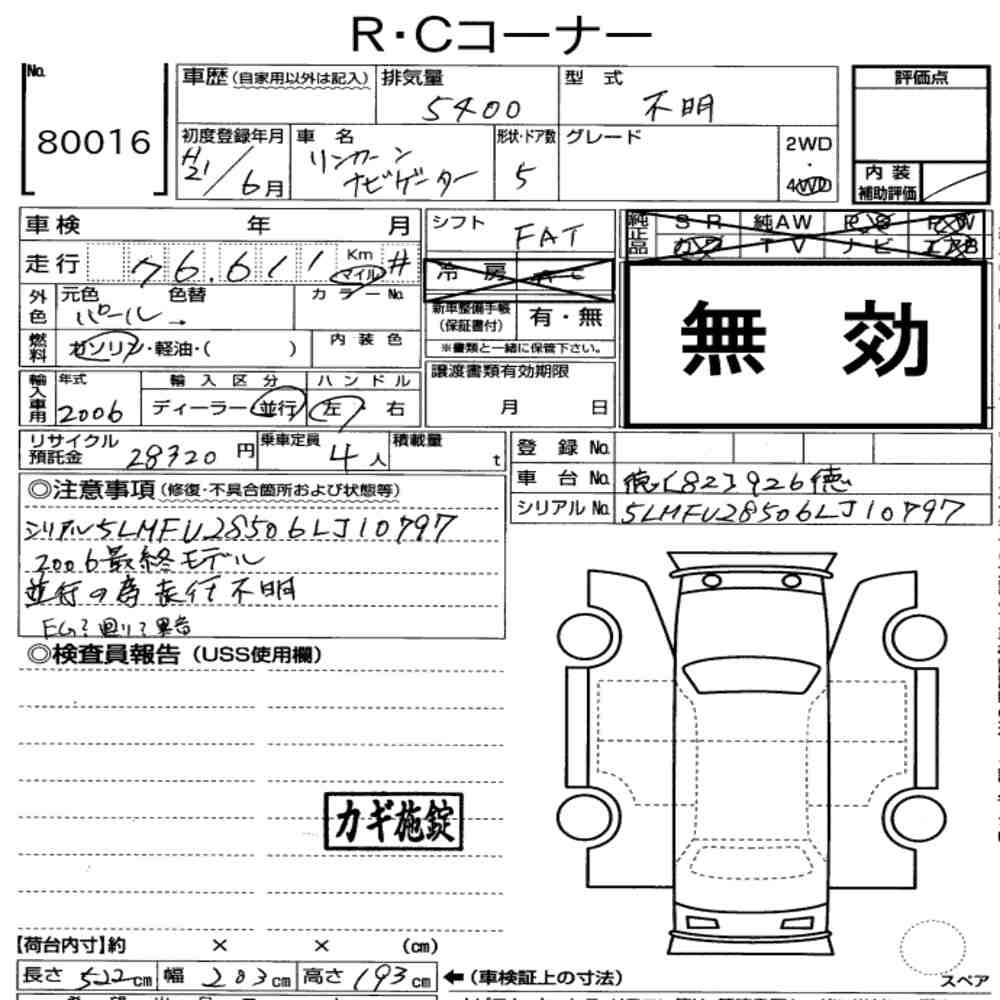 R・Cコーナー
No.
80016
車歴(自家用以外は記入)
排気量
5400
型 式
不明
評価点
初度登録年月
H21/6月
車 名
リンカーン
ナビゲーター
形状・ドア数
5
グレード
2WD
・
4WD
内 装
補助評価
車 検 年 月
シフト
FAT
純正品
SR 純AW PS PW
カワ TV ナビ エアB
走行 76,611 Km マイル #
冷 房 AC
無 効
外色
元色 色替
パール →
カラーNo.
新車整備手帳
(保証書付)
有・無
燃料
ガソリン・軽油・( )
内装色
※書類と一緒に保管下さい。
輸入車用
年式
2006
輸入区分
ディーラー・並行
ハンドル
左・右
譲渡書類有効期限
月 日
リサイクル
預託金 28320 円
乗車定員
4人
積載量
t
登 録 No.
車 台 No.
シリアルNo. 5LMFU28506LJ10797
◎注意事項(修復・不具合箇所および状態等)
シリアル5LMFU28506LJ10797
2006最終モデル
並行の為走行不明
◎検査員報告(USS使用欄)
カギ施錠
【荷台内寸】約 × × (cm)
長さ 522cm 幅 203cm 高さ 193cm
←(車検証上の寸法)
スペア